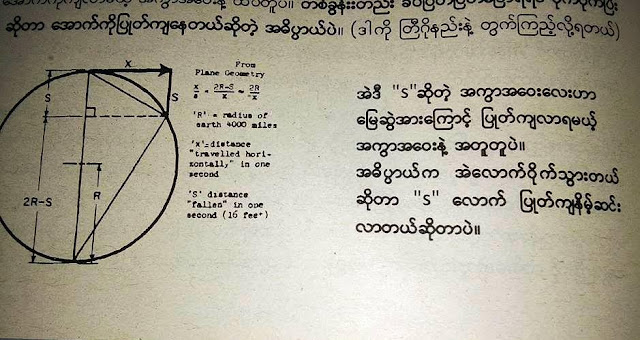 ဆိုတာ အောက်ကိုပြုတ်ကျနေတယ်ဆိုတဲ့ အဓိပ္ပာယ်ပဲ။ (ဒါကို တြီဂိုနည်းနဲ့ တွက်ကြည့်လို့ရတယ်)
x
S
S
2R-S
R
From
Plane Geometry
x/s = 2R-S/x ≈ 2R/x
'R' = radius of
earth 4000 miles
'x'=distance
"travelled hori-
zontally," in one
second
'S' distance
"fallen" in one
second (16 feet)
အဲဒီ "s"ဆိုတဲ့ အကွာအဝေးလေးဟာ
မြေဆွဲအားကြောင့် ပြုတ်ကျလာရမယ့်
အကွာအဝေးနဲ့ အတူတူပဲ။
အဓိပ္ပာယ်က အဲလောက်ဝိုက်သွားတယ်
ဆိုတာ "s" လောက် ပြုတ်ကျနိမ့်ဆင်း
လာတယ်ဆိုတာပဲ။